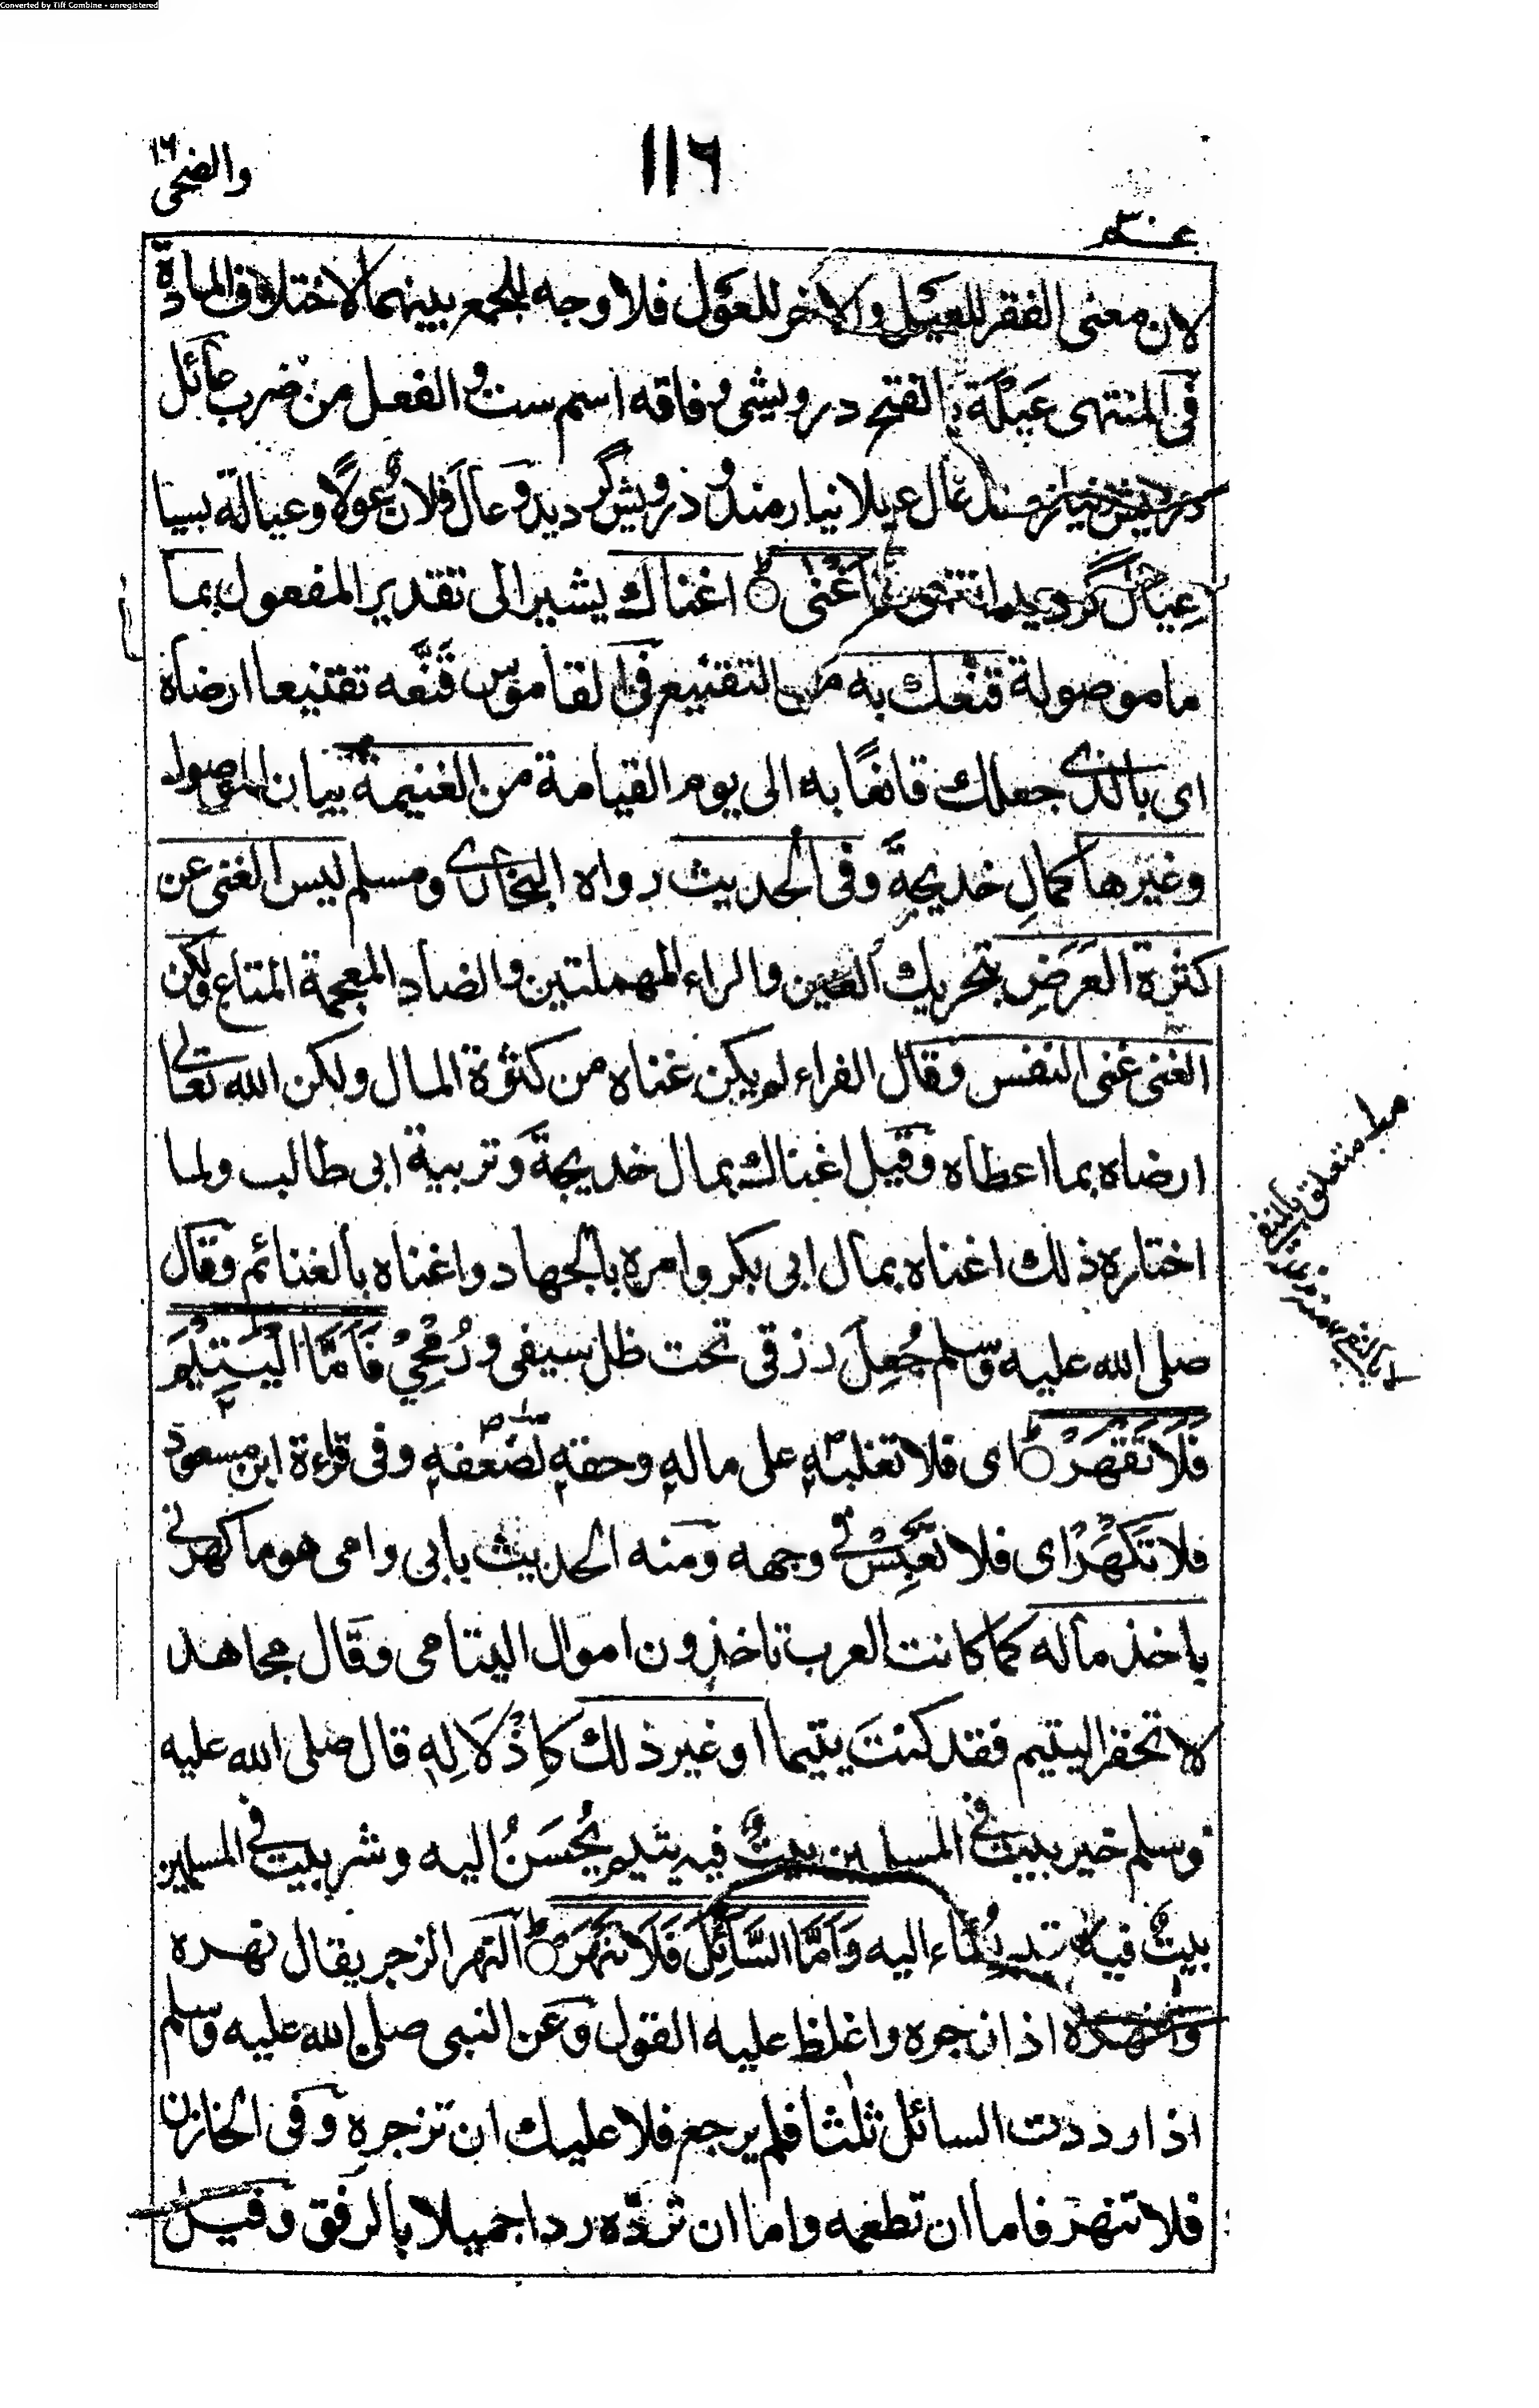 Converted by Tiff Combine - unregistered
والضحى
١١٦
عم
لان معنى الفقر للعيل والاخر للعول فلا وجه للجمع بينهما لاختلاف المادة
فى المنتهى عَيْلَة بالفتح درويشى وفاقه اسم ست والفعل من ضرب عائل
عال عيلا نيازمند ودرويش گرديد وعال فلان عولا وعيالة بسيا
عيال گرديد انتهى فاغنى اغناك يشير الى تقدير المفعول بما
ما موصولة قنعك به من التقنيع فى القاموس قنَّعه تقنيعا ارضاه
اى بالذى جعلك قانعًا به الى يوم القيامة من الغنيمة بيان الموصول
وغيرها كمالِ خديجةَ وفى الحديث رواه البخارى ومسلم ليس الغنى عن
كثرة العَرَضِ بتحريك العين والراء المهملتين والضاد المعجمة المتاع ولكن
الغنى غنى النفس وقال الفراء لم يكن غناه من كثرة المال ولكن الله تعالى
ارضاه بما اعطاه وقيل اغناك بمال خديجة وتربية ابى طالب ولما
اختاره ذلك اغناه بمال ابى بكر وامره بالجهاد واغناه بالغنائم وقال
صلى الله عليه وسلم جُعِلَ رزقى تحت ظل سيفى ورُمْحِيْ فَاَمَّا الْيَتِيْمَ
فَلَا تَقْهَرْ اى فلا تغلبه على ماله وحقه لضعفه وفى قراءة ابن مسعود
فلا تَكْهَرْ اى فلا تَعَبِسْ فى وجهه ومنه الحديث بابى وامى هو ما كهرنى
ياخذ ماله كما كانت العرب تاخذون اموال اليتامى وقال مجاهد
لا تحقر اليتيم فقد كنتَ يتيما او غير ذلك كاِذْلَالِهِ قال صلى الله عليه
وسلم خير بيت فى المسلمين بيتٌ فيه يتيم يُحْسَنُ اليه وشر بيت فى المسلمين
بيتٌ فيه يتيم يُسَاء اليه وَاَمَّا السَّائِلَ فَلَا تَنْهَرْ النهر الزجر يقال نهره
وانتهره اذا زجره واغلظ عليه القول وعن النبى صلى الله عليه وسلم
اذا رددت السائل ثلثا فلم يرجع فلا عليك ان تزجره وفى الخازن
فلا تنهر فاما ان تطعمه واما ان تردّه ردا جميلا بالرفق وقيل